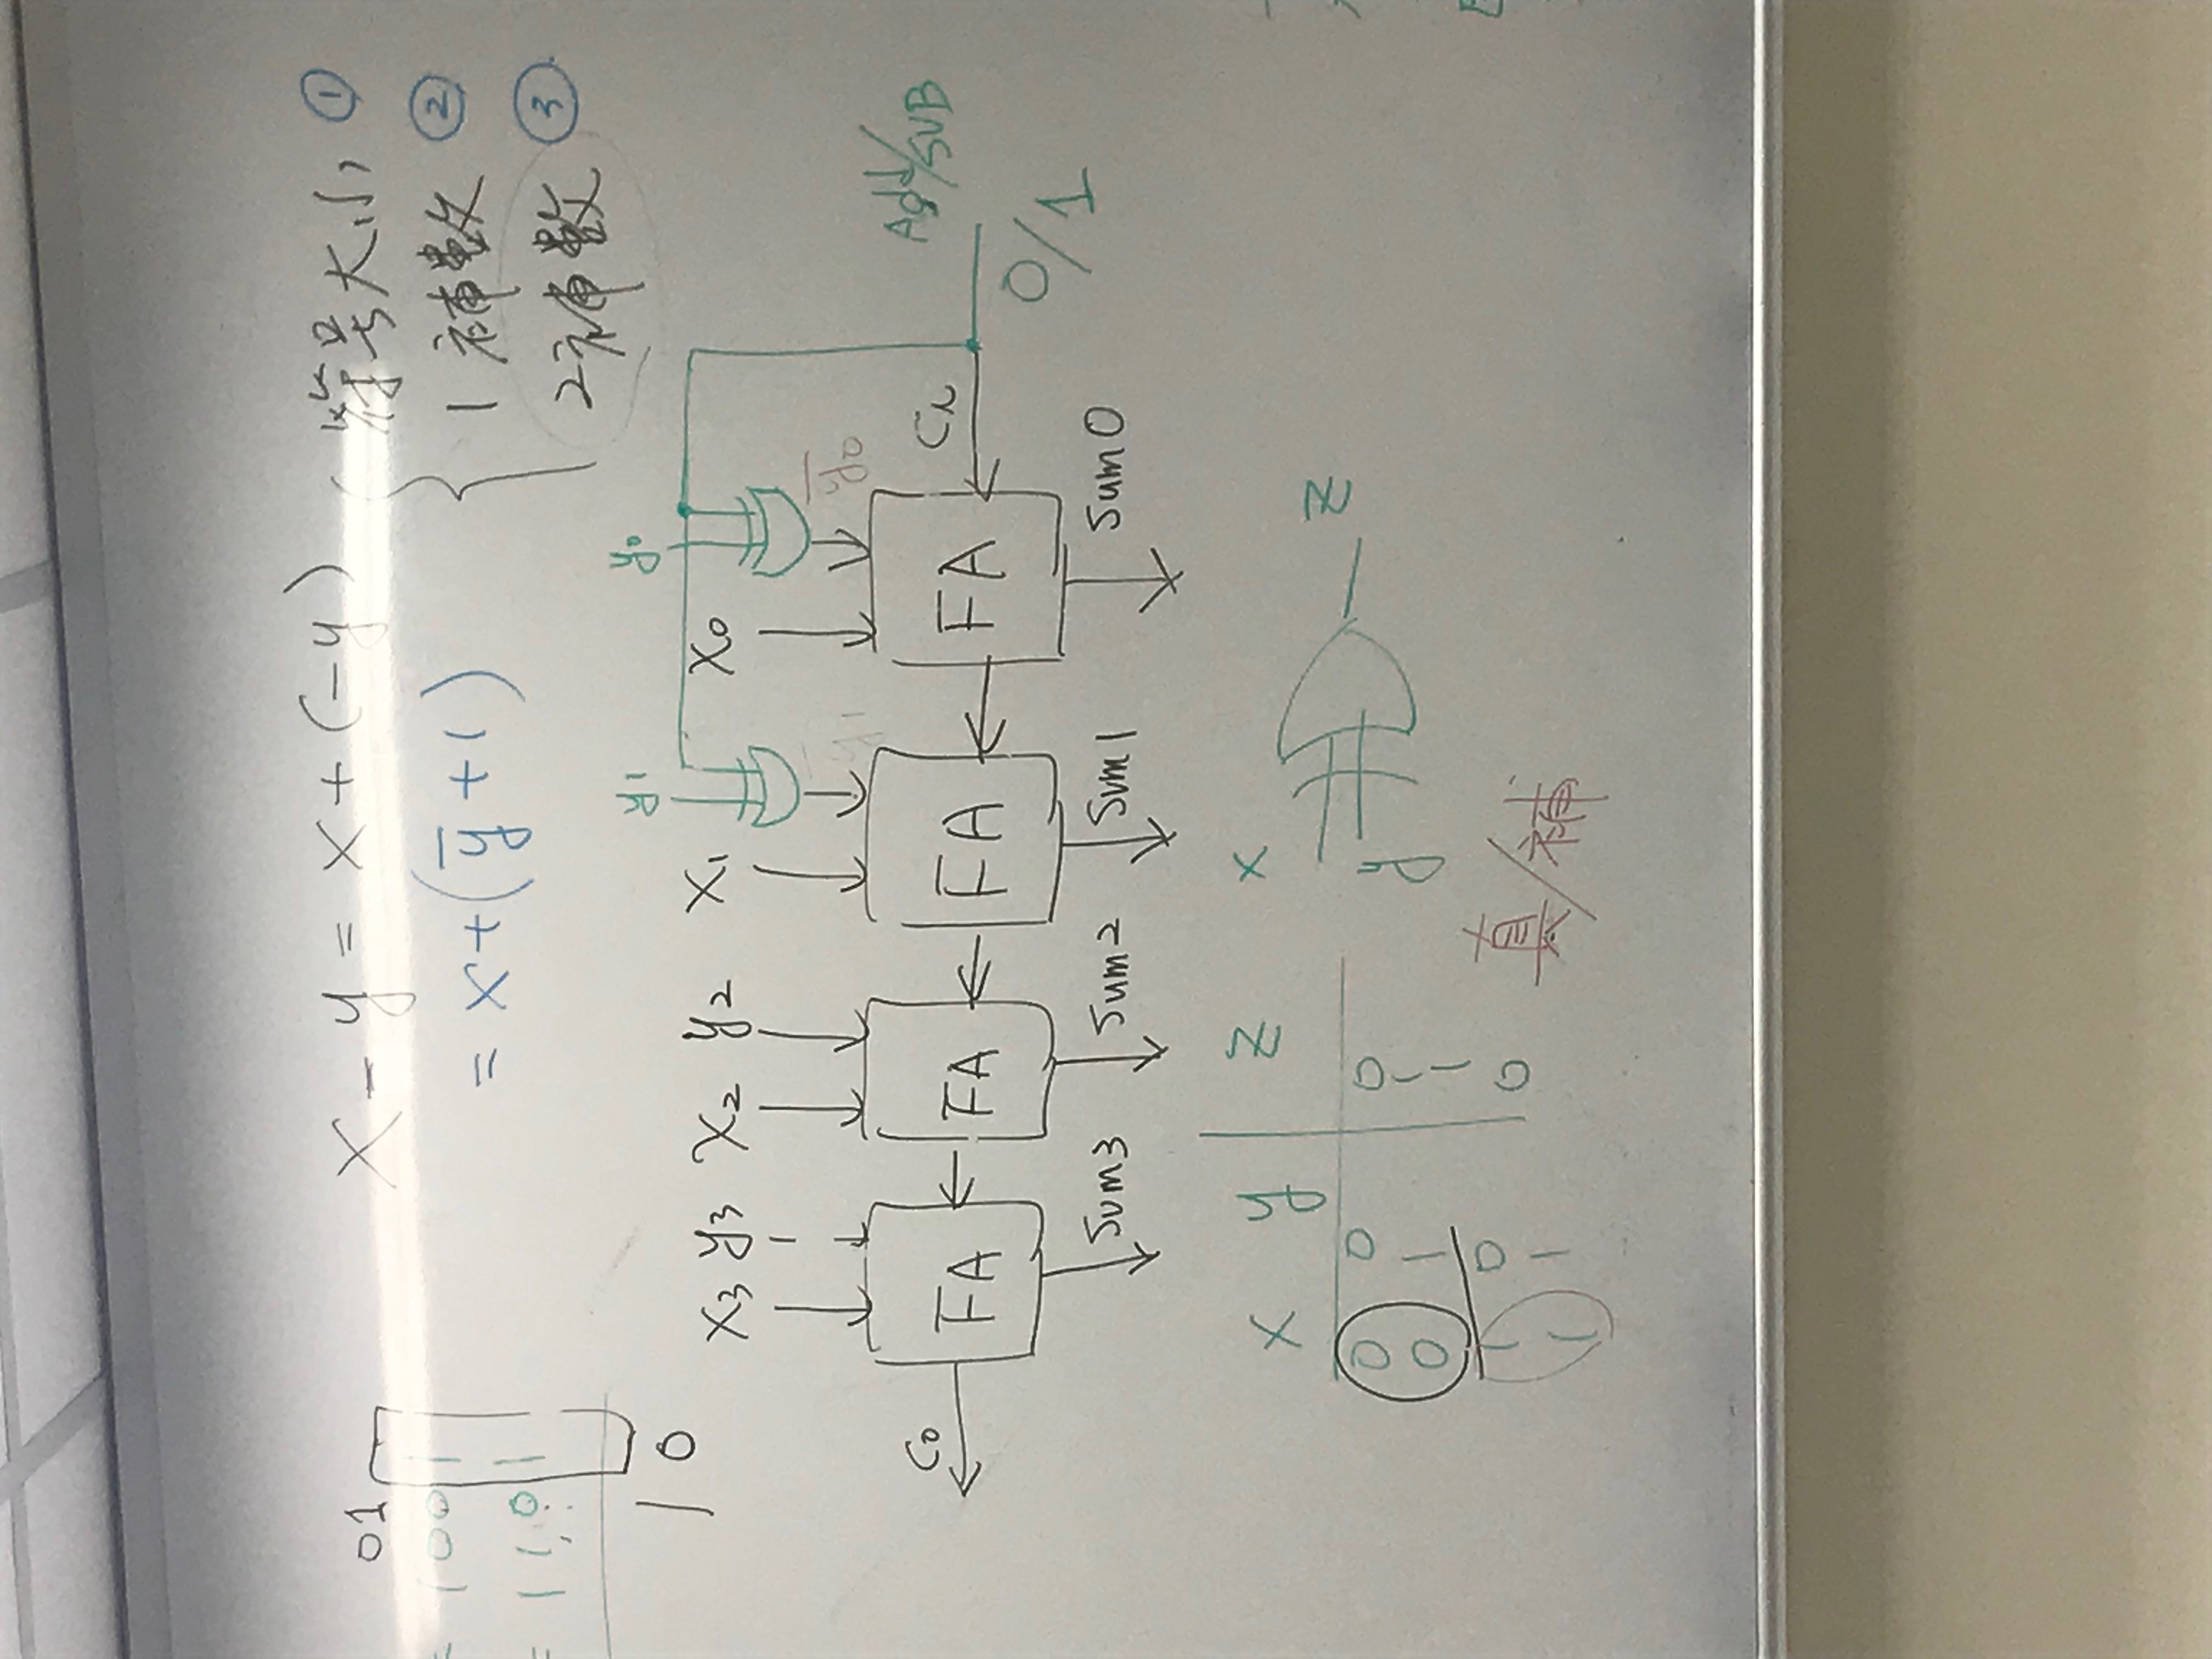 01
= 1001
= 1101
10
x - y = x + (-y)
= x + (y̅ + 1)
符号大小 ①
1 補數 ②
2補數 ③
y1 y0
x3 y3 x2 y2 x1 x0
y̅1 y̅0
C0 FA FA FA FA Ci
Add/SUB
0/1
Sum3 Sum2 Sum1 Sum0
x y z
0 0 0
0 1 1
1 0 1
1 1 0
x
y
z
真/補